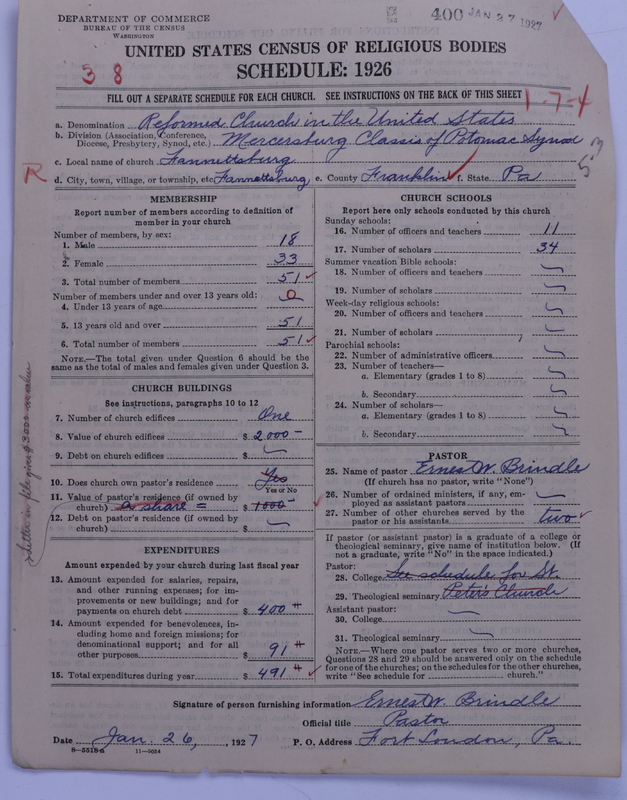 DEPARTMENT OF COMMERCE
BUREAU OF THE CENSUS
WASHINGTON
400 JAN 27 1927
UNITED STATES CENSUS OF RELIGIOUS BODIES
SCHEDULE: 1926
3 8
FILL OUT A SEPARATE SCHEDULE FOR EACH CHURCH. SEE INSTRUCTIONS ON THE BACK OF THIS SHEET
1-7-4
a. Denomination Reformed Church in the United States
b. Division (Association, Conference, Diocese, Presbytery, Synod, etc.) Mercersburg Classis of Potomac Synod
53
c. Local name of church Fannettsburg
R
d. City, town, village, or township, etc. Fannettsburg e. County Franklin f. State Pa
MEMBERSHIP
Report number of members according to definition of
member in your church
Number of members, by sex:
1. Male 18
2. Female 33
3. Total number of members 51
Number of members under and over 13 years old:
4. Under 13 years of age 0
5. 13 years old and over 51
6. Total number of members 51
NOTE.—The total given under Question 6 should be
same as the total of males and females given under Question 3.
CHURCH BUILDINGS
See instructions, paragraphs 10 to 12
7. Number of church edifices One
8. Value of church edifices $ 2000-
9. Debt on church edifices $
10. Does church own pastor's residence Yes
Yes or No
11. Value of pastor's residence (if owned by
church) a share = $ 1000
12. Debt on pastor's residence (if owned by
church) $
EXPENDITURES
Amount expended by your church during last fiscal year
13. Amount expended for salaries, repairs,
and other running expenses; for im-
provements or new buildings; and for
payments on church debt $ 400
14. Amount expended for benevolences, in-
cluding home and foreign missions; for
denominational support; and for all
other purposes $ 91
15. Total expenditures during year $ 491
CHURCH SCHOOLS
Report here only schools conducted by this church
Sunday schools:
16. Number of officers and teachers 11
17. Number of scholars 34
Summer vacation Bible schools:
18. Number of officers and teachers
19. Number of scholars
Week-day religious schools:
20. Number of officers and teachers
21. Number of scholars
Parochial schools:
22. Number of administrative officers
23. Number of teachers—
a. Elementary (grades 1 to 8)
b. Secondary
24. Number of scholars—
a. Elementary (grades 1 to 8)
b. Secondary
PASTOR
25. Name of pastor Ernest W. Brindle
(If church has no pastor, write "None")
26. Number of ordained ministers, if any, em-
ployed as assistant pastors
27. Number of other churches served by the
pastor or his assistants two
If pastor (or assistant pastor) is a graduate of a college or
theological seminary, give name of institution below. (If
not a graduate, write "No" in the space indicated.)
Pastor:
28. College See schedule for St.
29. Theological seminary Peter's Church
Assistant pastor:
30. College
31. Theological seminary
NOTE.—Where one pastor serves two or more churches,
Questions 28 and 29 should be answered only on the schedule
for one of the churches; on the schedules for the other churches,
write "See schedule for church."
Signature of person furnishing information Ernest W. Brindle
Official title Pastor
Date Jan. 26, 1927 P. O. Address Fort Loudon, Pa.
8-5518a 11-9054